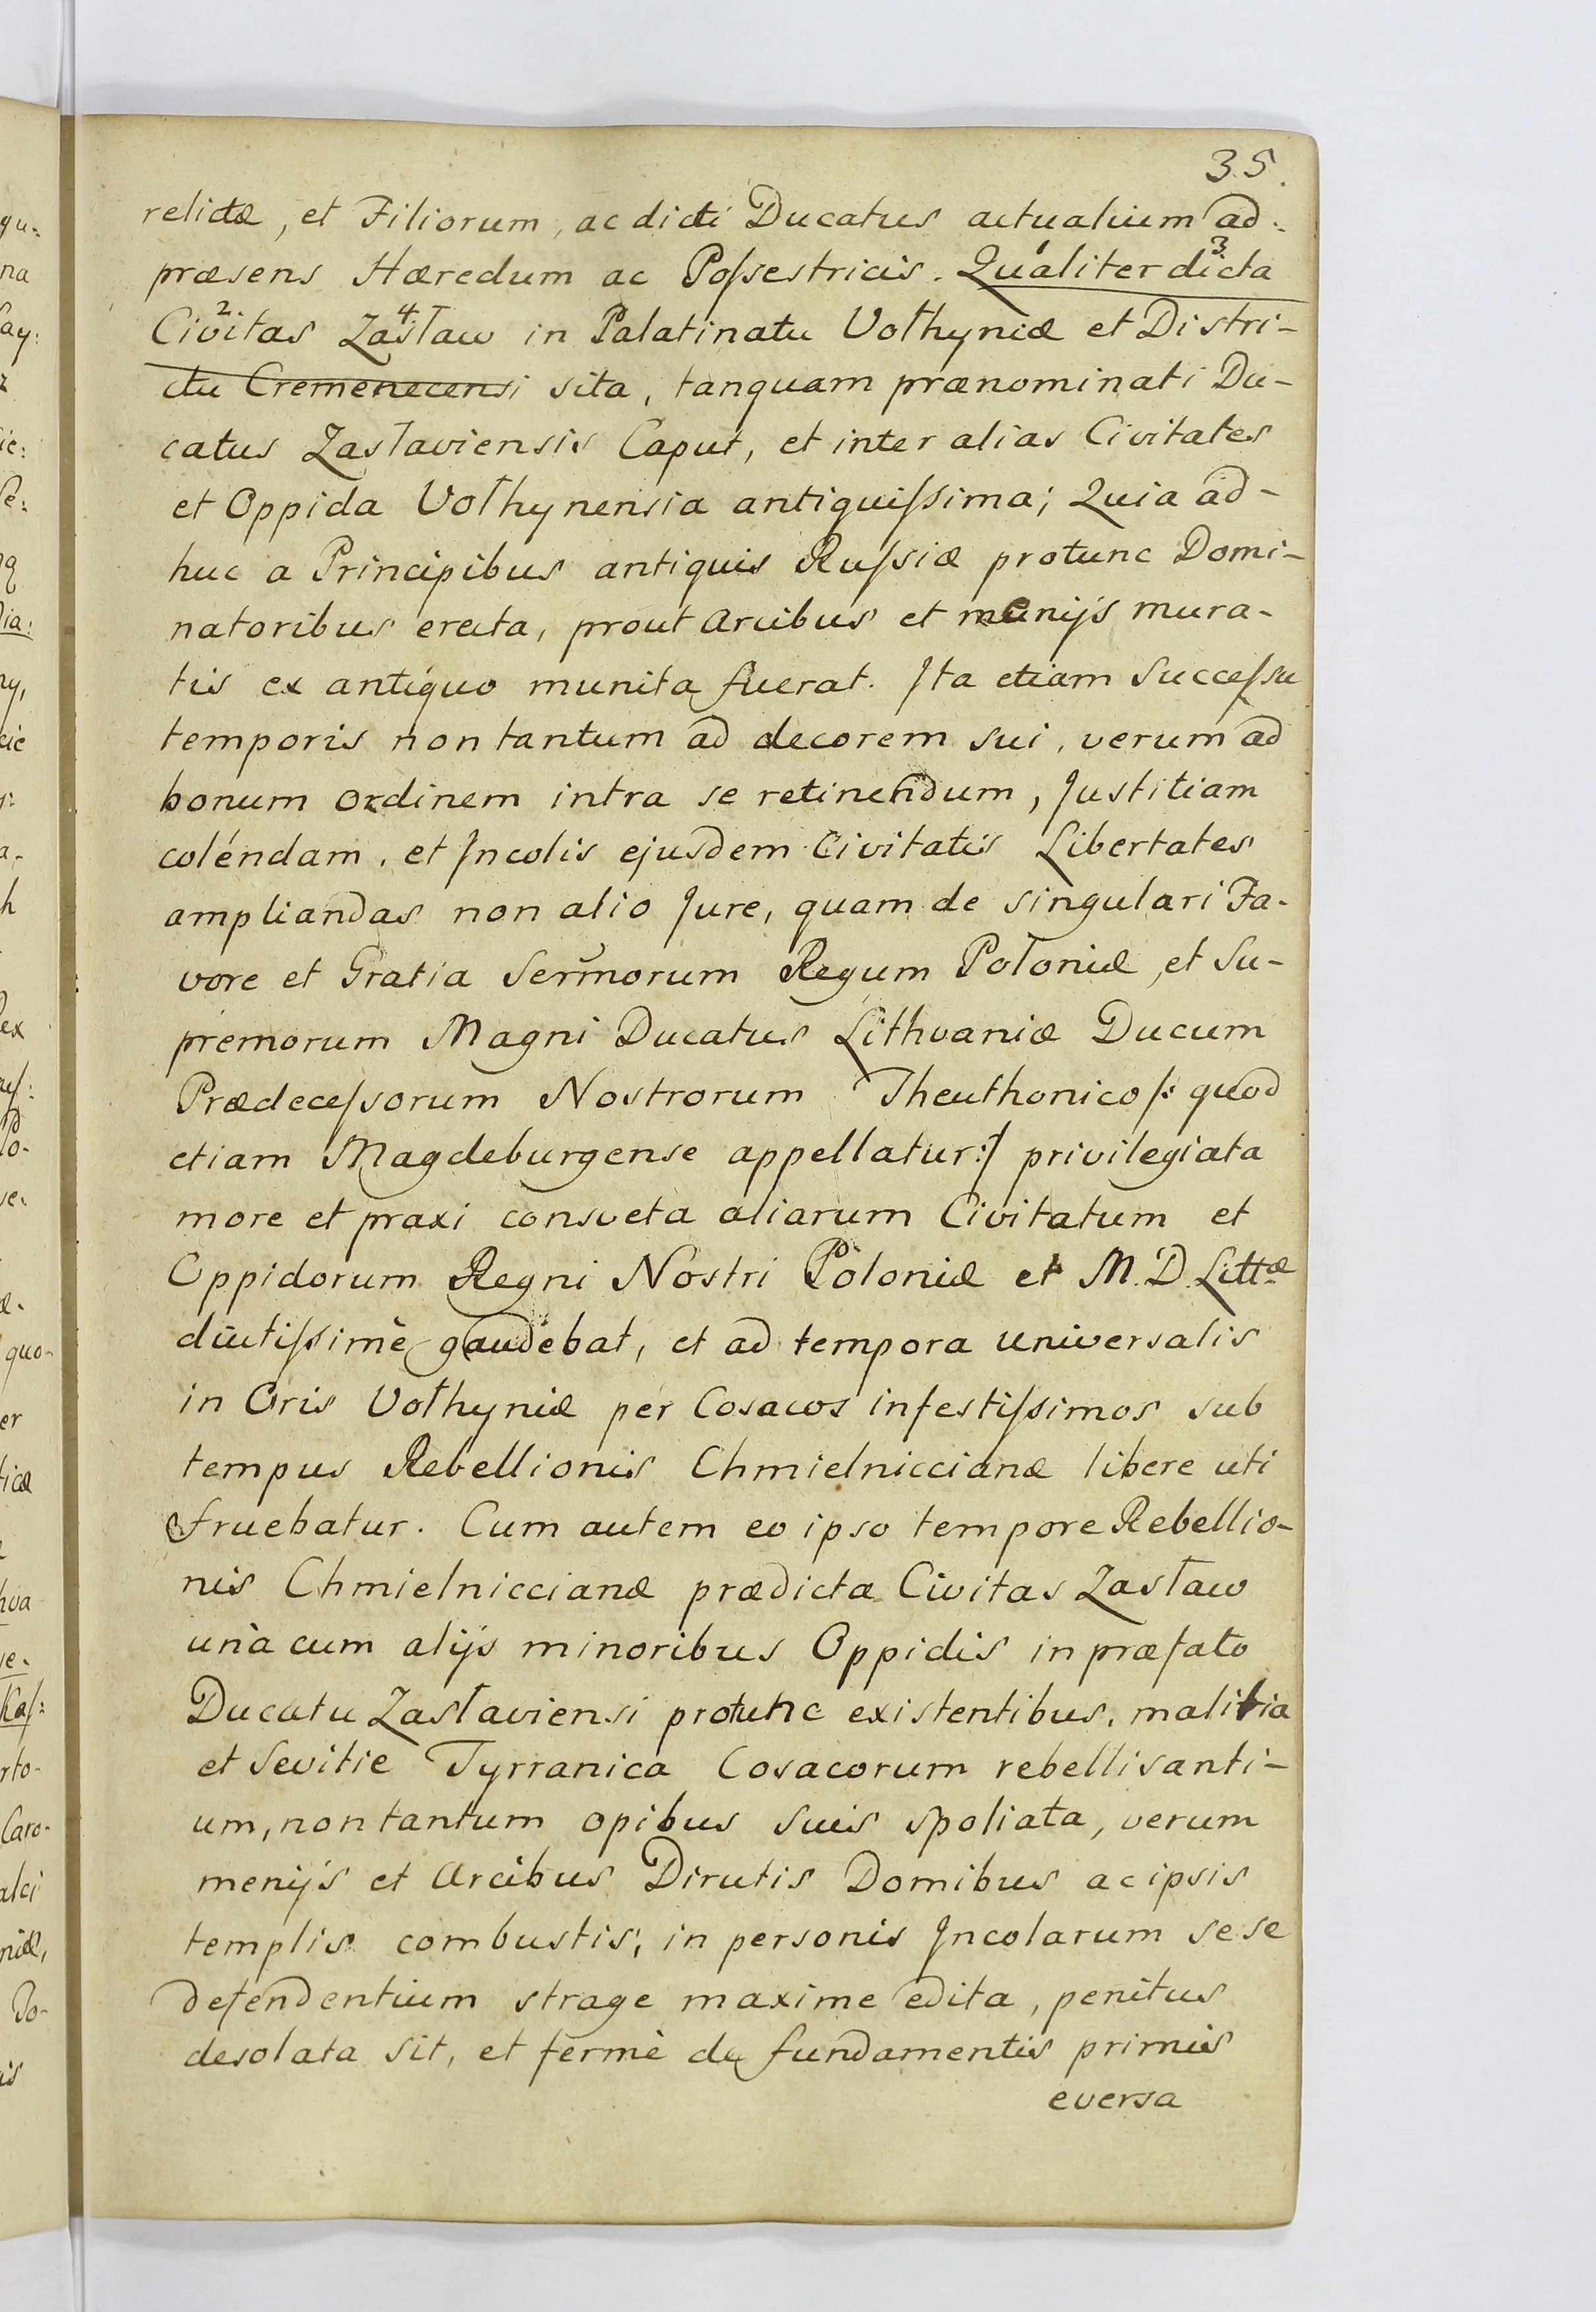 35.
relictæ, et Filiorum, ac dicti Ducatus actualium ad-
præsens Hæredum ac Poſsestricis. Qualiter dicta
Civitas Zasław in Palatinatu Vołhyniæ et Distri-
ctu Cremenecensi sita, tanquam prænominati Du-
catus Zasłaviensis Caput, et inter alias Civitates
et Oppida Vołhynensia antiquiſsima; Quia ad-
huc a Principibus antiquis Ruſsiæ protunc Domi-
natoribus erecta, prout Arcibus et menijs mura-
tis ex antiquo munita fuerat. Ita etiam Succeſsu
temporis non tantum ad decorem sui, verum ad
bonum ordinem intra se retinendum, Justitiam
coléndam, et Incolis ejusdem Civitatis Libertates
ampliandas non alio Jure, quam de singulari Fa-
vore et Gratia Serm̄orum Regum Połoniæ, et Su-
premorum Magni Ducatus Lithvaniæ Ducum
Prædeceſsorum Nostrorum Theuthonico /: quod
etiam Magdeburgense appellatur :/ privilegiata
more et praxi consveta aliarum Civitatum et
Oppidorum Regni Nostri Poloniæ et M. D. Littæ
diutiſsimè gaudebat, et ad tempora universalis
in Oris Vołhyniæ per Cosacos infestiſsimos sub
tempus Rebellionis Chmielniccianæ libere uti
fruebatur. Cum autem eo ipso tempore Rebellio-
nis Chmielniccianæ prædicta Civitas Zasław
unà cum alijs minoribus Oppidis in præfato
Ducatu Zasłaviensi protunc existentibus, malitia
et Sevitie Tyrranica Cosacorum rebellisanti-
um, non tantum opibus suis spoliata, verum
menijs et Arcibus Dirutis Domibus ac ipsis
templis combustis, in personis Incolarum sese
defendentium strage maxime edita, penitus
desolata sit, et fermè de fundamentis primis
eversa